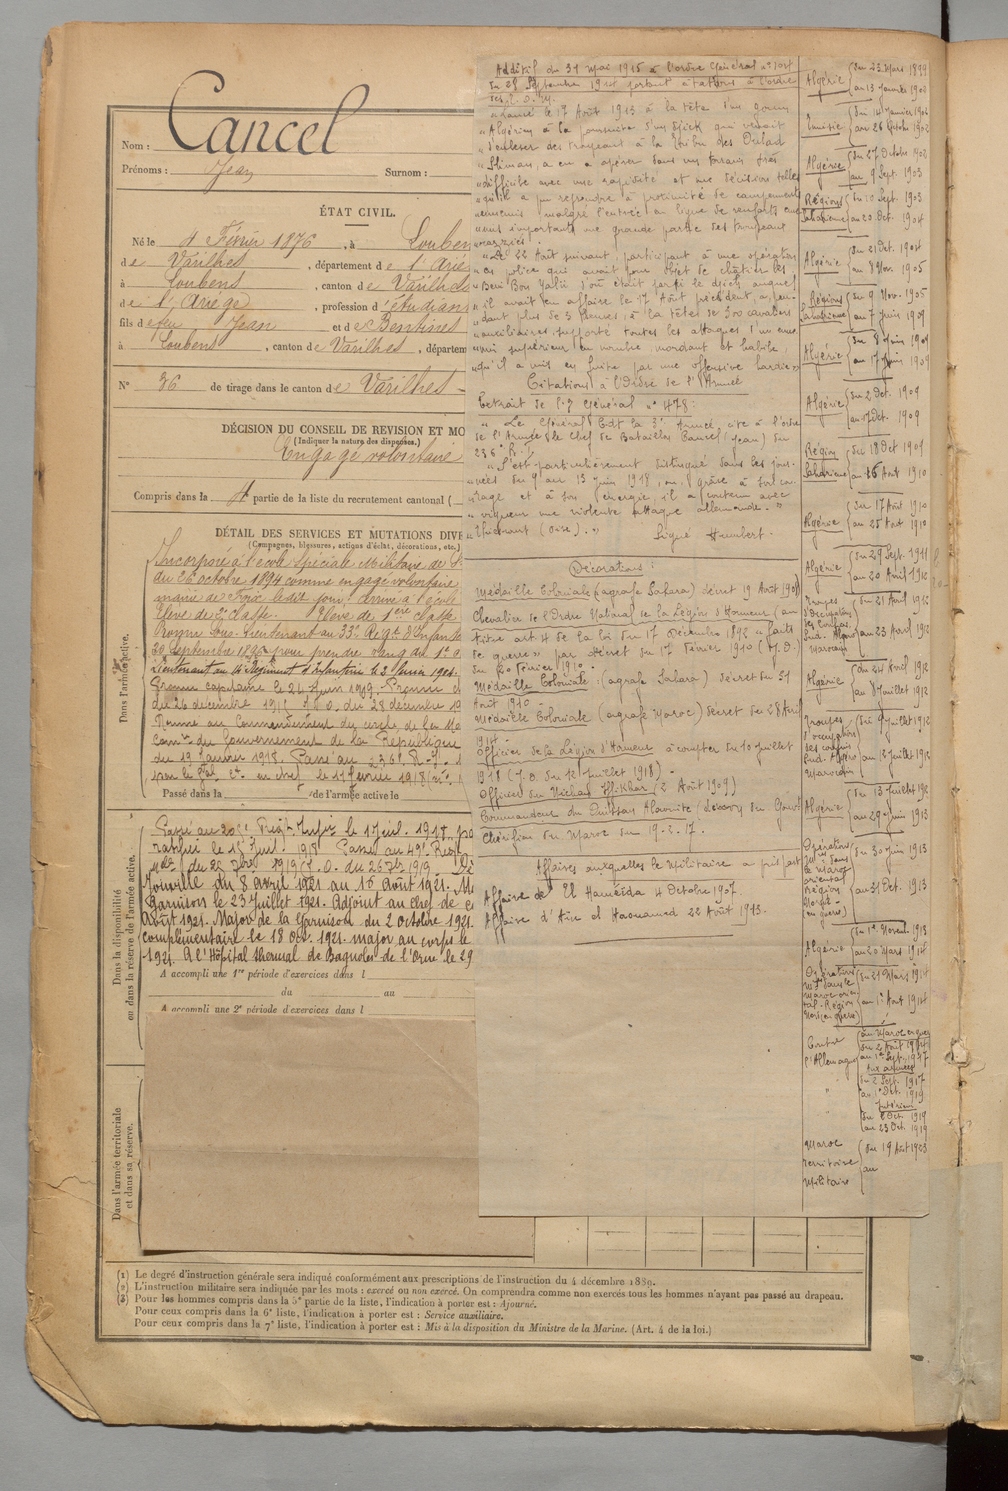 Cancel
Nom :
Prénoms : Jean Surnom :
ÉTAT CIVIL.
Né le 4 Février 1876, à Louben
de Varilhes, département de l'Ariè
à Loubens, canton de Varilhes
de l'Ariège, profession d'étudian
fils de feu Jean et de Bentines
à Loubens, canton de Varilhes, départem
N° 36 de tirage dans le canton de Varilhes
DÉCISION DU CONSEIL DE REVISION ET MO
(Indiquer la nature des dispenses.)
Engagé volontaire
Compris dans la 4 partie de la liste du recrutement cantonal (
DÉTAIL DES SERVICES ET MUTATIONS DIVE
(Campagnes, blessures, actions d'éclat, décorations, etc.)
Dans l'armée active.
Incorporé à l'école Spéciale Militaire de S
du 26 octobre 1894 comme engagé volontaire
mairie de Foix ledit jour. Arrivé à l'école
Elève de 2e classe. Elève de 1ère classe
Promu Sous-Lieutenant au 33e Régt d'Infante
30 septembre 1896 pour prendre rang du 1er o
Lieutenant au Régiment d'infanterie le 3 Juin 1901.
Promu capitaine le 24 Juin 1909. Promu
du 26 décembre 1915 J.O. du 28 décembre 19
Nommé au Commandement du cercle de
Comre du Gouvernement de la République
du 19 Janvier 1918. Passé au 236e R.I.
par le Gal Ct en chef le 11 février 1918
Passé dans la de l'armée active le
Dans la disponibilité
ou dans la réserve de l'armée active.
Passé au 20e Régt Infie le 1 Juil. 1918
le 15 Juil. 1918 Passé au 49e Regt
du 22 7bre 1919 J.O. du 26 7bre 1919
Joinville du 8 avril 1921 au 16 Août 1921.
Garnison le 23 Juillet 1921. Adjoint au chef de
Août 1921. Major de la Garnison du 2 octobre 1921.
complémentaire le 18 oct. 1921. major au corps le
1921. A l'Hôpital thermal de Bagnoles de l'Orne le 29
A accompli une 1re période d'exercices dans l
du au
A accompli une 2e période d'exercices dans l
Dans l'armée territoriale
et dans sa réserve.
Additif du 31 Mai 1915 à l'ordre Général n°
du 28 Septembre 1914 portant citations à l'ordre
des T.O.M.
"Lancé le 17 Août 1913 à la tête d'un goum
" Algérien à la poursuite d'un djich qui venait
" d'enlever des troupeaux à la tribu des Oulad
" Sliman, a eu à opérer dans un terrain très
" difficile avec une rapidité et une décision telle
" qu'il a pu reprendre à proximité de campements
" ennemis malgré l'entrée en ligne de renforts enn
" emis importants une grande partie des troupeaux
" razziés".
"Le 22 Août suivant, participant à une opération
" de police qui avait pour objet de châtier les
" Beni Bou Yahi d'où était parti le djich auquel
" il avait eu affaire le 17 Août précédent, a, pen-
" dant plus de 3 heures, à la tête de 300 cavaliers
" auxiliaires, supporté toutes les attaques d'un enne
" mi supérieur en nombre, mordant et habile,
" qu'il a mis en fuite par une offensive hardie"
Citations à l'Ordre de l'Armée
Extrait de l'O. Général n° 478 :
" Le Général Cdt la 3e Armée cite à l'ordre
de l'Armée le Chef de Bataillon Cancel (Jean) du
236e R.I.
" S'est particulièrement distingué dans les jour-
" nées du 9 au 13 Juin 1918, où, grâce à son cou
" rage et à son énergie, il a contenu avec
" vigueur une violente attaque allemande. "
Thiescourt (Oise). " Signé Humbert.
Décorations :
Médaille Coloniale (agrafe Sahara) décret 19 Août 1904
Chevalier de l'Ordre National de la Légion d'Honneur (au
titre art. 4 de la loi du 17 Décembre 1892 " faits
de guerre" par Décret du 17 Février 1910 (J.O.)
du 20 février 1910.
Médaille Coloniale (agrafe Sahara) décret du 31
Août 1910
Médaille Coloniale (agrafe Maroc) décret du 28 Avril
1914.
Officier de la Légion d'Honneur à compter du 10 Juillet
1918 (J.O. du 12 Juillet 1918).
Officier du Nichan Iftikhar (2 Août 1909)
Commandeur du Ouissam Alaouite décision du Gouvt
Chérifien du Maroc du 19.2.17.
Affaires auxquelles le Militaire a pris part
Affaire de El Hameïda 4 Octobre 1907.
Affaire d'Aïn el Haouamed 22 Août 1913.
Algérie du 23 Mars 1899
au 13 Janvier 1902
Tunisie du 14 Janvier 1902
au 26 Octobre 1902
Algérie du 27 Octobre 1902
au 9 Sept. 1903
Régions Sahariennes du 10 Sept. 1903
au 20 Oct. 1904
Algérie du 21 Oct. 1904
au 8 Nov. 1905
Régions Sahariennes du 9 Nov. 1905
au 7 Juin 1909
Algérie du 8 Juin 1909
au 17 Juin 1909
Algérie du 2 Oct. 1909
au 17 Oct. 1909
Région Saharienne du 18 Oct 1909
au 16 Août 1910
Algérie du 17 Août 1910
au 25 Août 1910
Algérie du 29 Sept. 1911
au 20 Avril 1912
Troupes d'occupation des Confins Sud. Algéro Marocain du 21 Avril 1912
au 23 Avril 1912
Algérie du 24 Avril 1912
au 8 Juillet 1912
Troupes d'occupation des confins Sud. Algéro Marocain du 9 Juillet 1912
au 12 Juillet 1912
Algérie du 13 Juillet 1912
au 29 Juin 1913
Opérations dans le Maroc oriental Région Nord (en guerre) du 30 Juin 1913
au 31 Oct. 1913
Algérie du 1er Novemb. 1913
au 20 Mars 1914
Opérations dans le Maroc oriental Région Nord (en guerre) du 21 Mars 1914
au 1er Août 1914
Contre l'Allemagne au Maroc en guerre
du 2 Août 1914
au 1er Sept. 1917
Aux armées
du 2 Sept. 1917
au 1er Oct. 1919
Intérieur
du 2 Oct. 1919
au 23 Oct. 1919
Maroc du 19 Août 1923
Territoire au
Militaire
(1) Le degré d'instruction générale sera indiqué conformément aux prescriptions de l'instruction du 4 décembre 1889.
(2) L'instruction militaire sera indiquée par les mots : exercé ou non exercé. On comprendra comme non exercés tous les hommes n'ayant pas passé au drapeau.
(3) Pour les hommes compris dans la 5e partie de la liste, l'indication à porter est : Ajourné.
Pour ceux compris dans la 6e liste, l'indication à porter est : Service auxiliaire.
Pour ceux compris dans la 7e liste, l'indication à porter est : Mis à la disposition du Ministre de la Marine. (Art. 4 de la loi.)